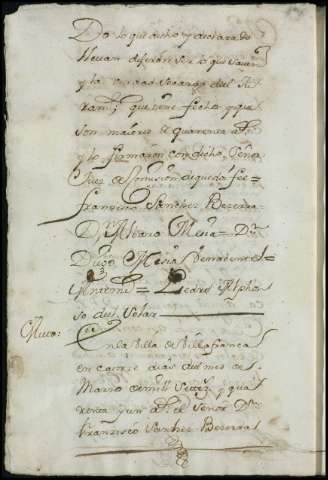 Do lo que dicho y declarado
llevan dijeron ser lo que saven
y la verdad so cargo del Ju
ram.to que tiene fecho y que
son maiores de quarenta a.s
y lo firmaron con dicho Señor
Juez de Comision de que doi fee=
Francisco Sanchez Bezerra=
D.n Alvaro Mesia= D.n
Diego Mesia Benavente=
Antemi= Pedro Alphon
so del Solar
Auto:
En la Villa de Villafranca
en catorze dias del mes de
Marzo de mill Setez.s y qua
renta y un a.s el Señor D.n
Francisco Sanchez Bezerra